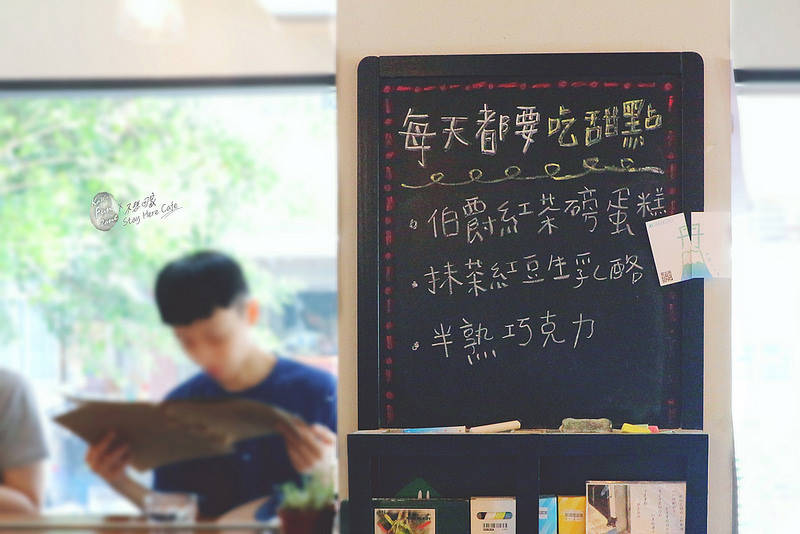 每天都要吃甜點
伯爵紅茶磅蛋糕
抹茶紅豆生乳酪
半熟巧克力
不想回家
Stay Here Cafe